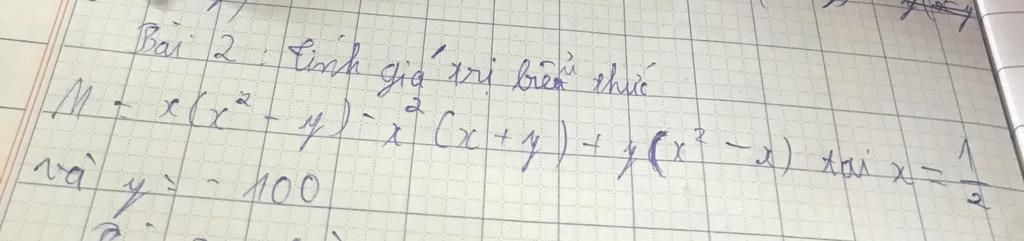 Bài 2: tính giá trị biểu thức
M = x(x² - y) - x² (x + y) + y(x² - x) tại x = 1/2
và y = - 100